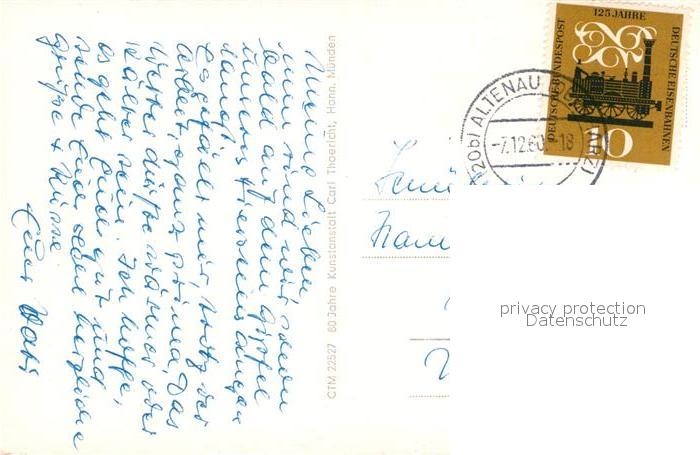 Meine Lieben,
nun sind wir schon
bald auf dem Gipfel
unseres Hierseins angelangt.
Es gefällt mir, trotz der
Arbeit, ganz prima. Das
Wetter dürfte wärmer oder
kälter sein. Ich hoffe,
es geht Euch gut und
sende Euch allen herzliche
Grüße + Küsse
Euer
CTM 22527 80 Jahre Kunstanstalt Carl Thoericht, Hann. Münden
125 JAHRE
DEUTSCHE BUNDESPOST
DEUTSCHE EISENBAHNEN
10
(20b) ALTENAU
-7.12.60
18
Fam
privacy protection
Datenschutz